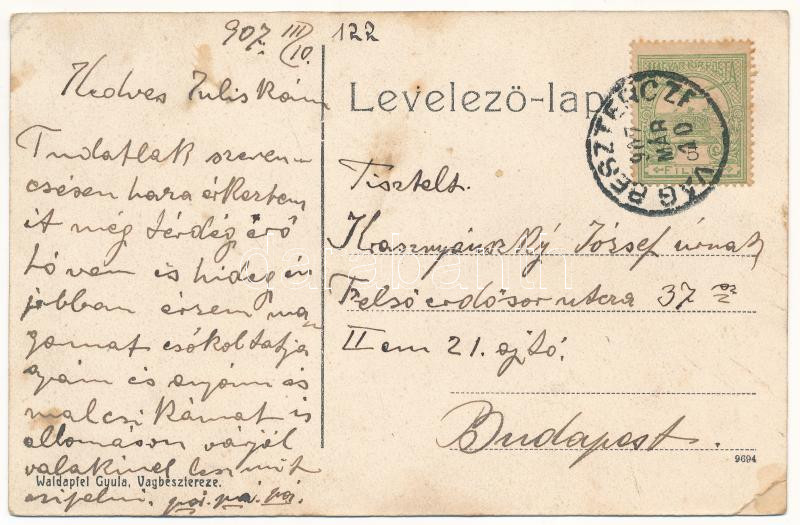 907 III/10. 122
Kedves Juliskám
Levelező-lap
MAGYAR KIR. POSTA
FILLÉR
VÁG BESZTERCZE
907 MÁR 10
Tudatlak szeren-
csésen haza érkeztem
it még térdég érő
hó van is hideg én
jobban érzem ma-
gamat csókoltatja
apám és anyám és
malcsi Kámat is
állomáson várjál
valakinel lesz mit
czipelni. pá. pá. pá.
Tisztelt.
Krasznyánszky József úrnak
Felső erdősor utcza 37 sz
II em 21. ajtó.
Budapest.
Waldapfel Gyula, Vagbesztereze.
9694
darabanth